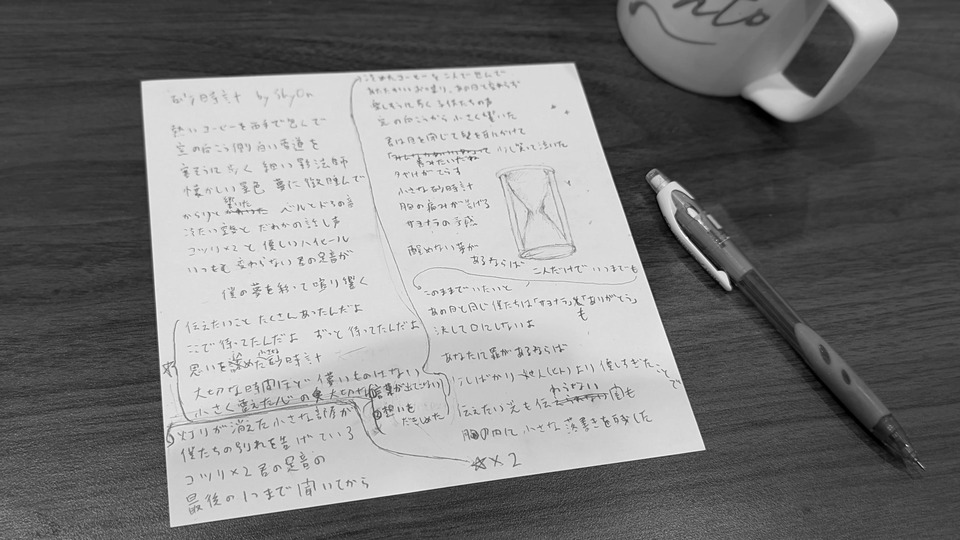 砂時計 by ShyOn
熱いコーヒーを両手で包んで
窓の向こう側 白い歩道を
寄りそうに歩く 細い影法師
懐かしい景色 夢に微睡んで
からりと 響いた ベルとドアの音
冷たい空気と だれかの話し声
コツリ×2と 優しいハイヒール
いつも 変わらない君の足音が
僕の夢を紡いで鳴り響く
伝えたいこと たくさんあったんだよ
ここで待ってたんだよ ずっと待ってたんだよ
思いを 小さな 砂時計
大切な時間ほど 儚いものはない
小さく震えた 大切な 言葉が出てこない
想いを
だきしめた
灯りが消えた小さな部屋が
僕たちの別れを告げている
コツリ×2 君の足音の
最後の1つまで聞いてから
冷めたコーヒーを二人で包んで
窓の向こうから小さく響いた
君は目を閉じて髪を耳にかけて
少し笑って泣いた
小さな砂時計
胸の痛みが告げる
サヨナラの予感
醒めない夢が
あるならば
二人だけで いつまでも
このままでいたいと
あの日と同じ僕たちは「サヨナラ」も「ありがとう」
も
決して口にしないよ
あなたに罪があるならば
少しばかり 他人(ひと)より優しすぎたことで
わらない
伝えたい
胸の内に小さな 残した
☆×2
nto